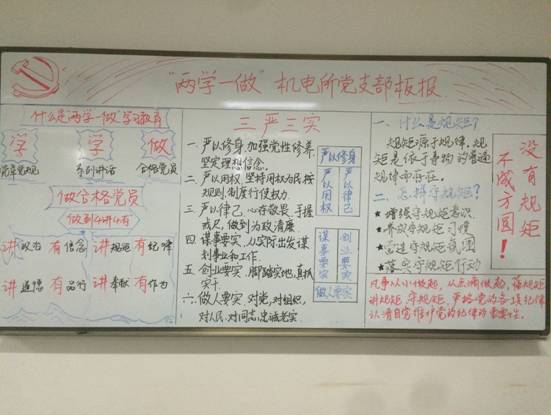 "两学一做"机电所党支部板报
什么是两学一做 学习教育
学 学 做
系列讲话 合格党员
做合格党员
做到四讲四有
讲政治 有信念 讲规矩 有纪律
讲道德 有品行 讲奉献 有作为
三严三实
一、严以修身,加强党性修养,
坚定理想信念。
二、严以用权,坚持用权为民,按
规则、制度行使权力.
三、严以律己,心存敬畏、手握
戒尺,做到为政清廉
四、谋事要实,从实际出发谋
划事业和工作。
五、创业要实,脚踏实地,真抓
实干
六、做人要实,对党、对组织,
对人民、对同志,忠诚老实
严以修身
严以用权
严以律己
谋事要实
创业要实
做人要实
一、什么是规矩?
规矩源于规律,规
矩是依于事物的普遍
规律中存在。
二、怎样守规矩?
★增强守规矩意识
★养成守规矩习惯
★营造守规矩氛围
★落实守规矩行动
没有规矩
不成方圆!
凡事从小做起,从点滴做起,
讲规矩、守规矩,严格党的各项纪律
认清自觉维护党的纪律的重要性。